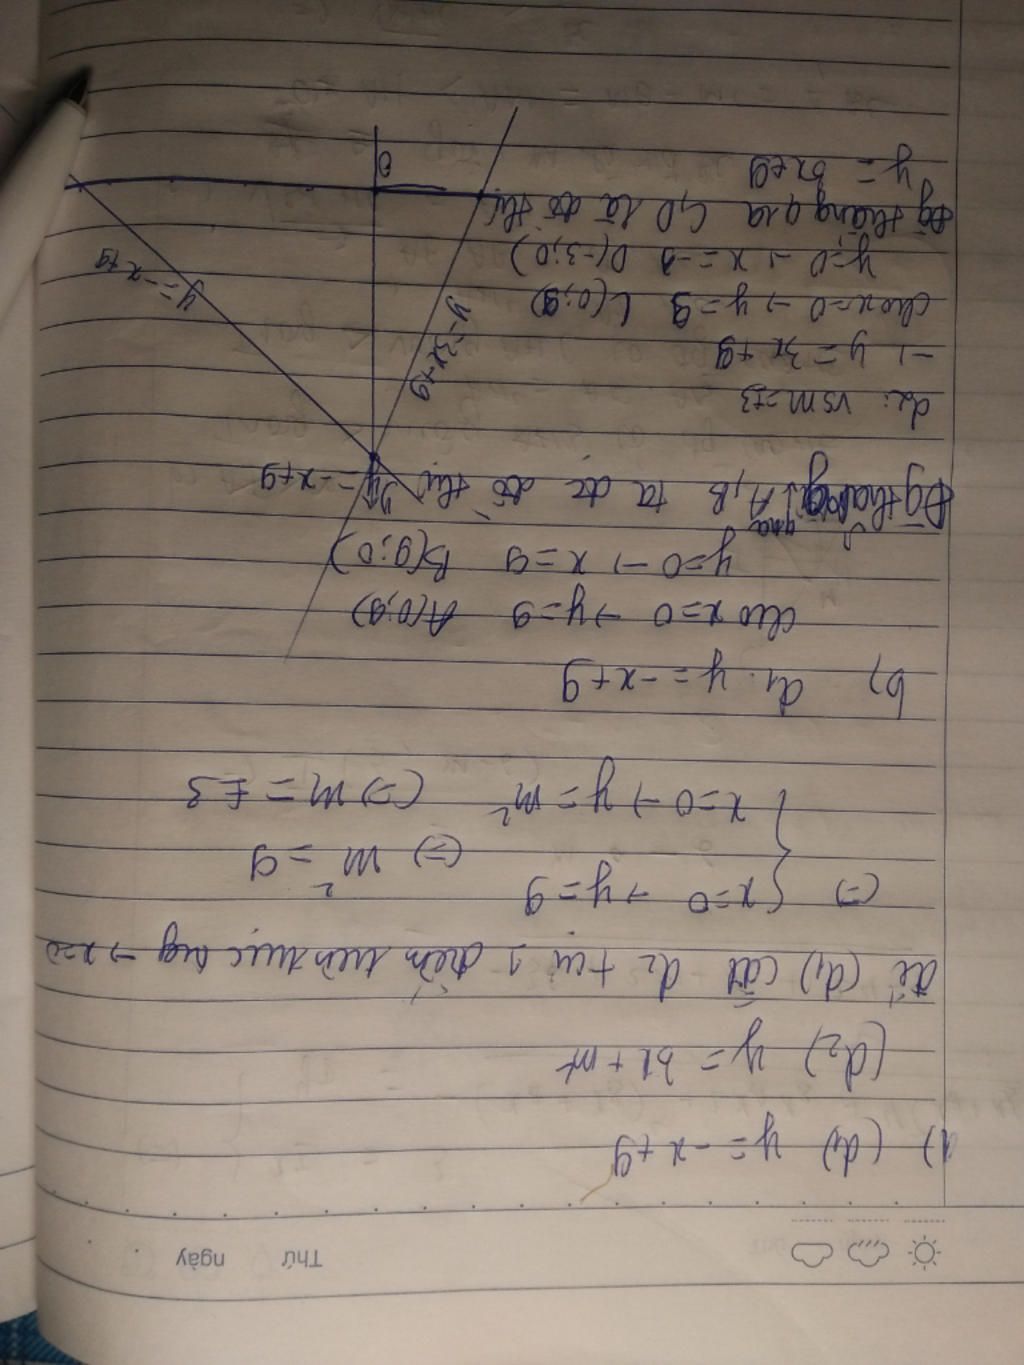 Thứ ngày
a) (d₁) y = -x+9
(d₂) y = 3x + m²
để (d₁) cắt d₂ tại 1 điểm trên trục tung → x=0
(=) { x=0 → y=9
(=) m² = 9
x=0 → y=m² (=) m = ±3
b) d₁: y = -x+9
cho x=0 → y=9 A(0;9)
y=0 → x=9 B(9;0)
Đg thẳng qua A, B ta đc đồ thị y=-x+9
d₂: vs m=±3
→ y = 3x+9
cho x=0 → y=9 C(0;9)
y=0 → x=-3 D(-3;0)
Đg thẳng qua C,D là đồ thị
y = 3x+9
y=3x+9
y=-x+9
0